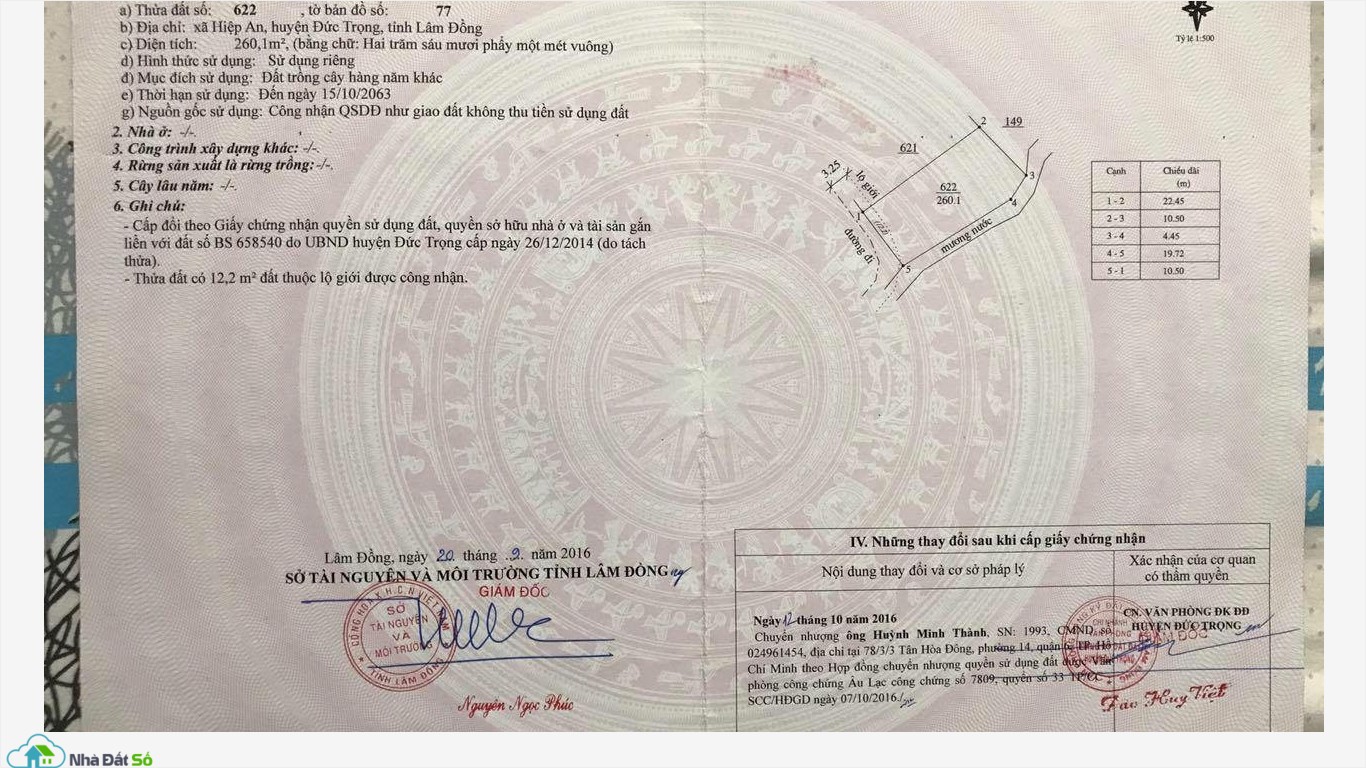 a) Thửa đất số: 622 , tờ bản đồ số: 77
b) Địa chỉ: xã Hiệp An, huyện Đức Trọng, tỉnh Lâm Đồng
c) Diện tích: 260,1m², (bằng chữ: Hai trăm sáu mươi phẩy một mét vuông)
d) Hình thức sử dụng: Sử dụng riêng
đ) Mục đích sử dụng: Đất trồng cây hàng năm khác
e) Thời hạn sử dụng: Đến ngày 15/10/2063
g) Nguồn gốc sử dụng: Công nhận QSDĐ như giao đất không thu tiền sử dụng đất
2. Nhà ở: -/-.
3. Công trình xây dựng khác: -/-.
4. Rừng sản xuất là rừng trồng:-/-.
5. Cây lâu năm: -/-.
6. Ghi chú:
- Cấp đổi theo Giấy chứng nhận quyền sử dụng đất, quyền sở hữu nhà ở và tài sản gắn
liền với đất số BS 658540 do UBND huyện Đức Trọng cấp ngày 26/12/2014 (do tách
thửa).
- Thửa đất có 12,2 m² đất thuộc lộ giới được công nhận.
Tỷ lệ 1:500
2 149
621
3.25
lộ giới
622
260.1
3
4
1
đường đi
mương nước
5
Cạnh Chiều dài
(m)
1 - 2 22.45
2 - 3 10.50
3 - 4 4.45
4 - 5 19.72
5 - 1 10.50
Lâm Đồng, ngày 20 tháng 9 năm 2016
SỞ TÀI NGUYÊN VÀ MÔI TRƯỜNG TỈNH LÂM ĐỒNG
GIÁM ĐỐC
CỘNG HÒA X.H.C.N VIỆT NAM
SỞ
TÀI NGUYÊN
VÀ
MÔI TRƯỜNG
TỈNH LÂM ĐỒNG
Nguyễn Ngọc Phúc
IV. Những thay đổi sau khi cấp giấy chứng nhận
Nội dung thay đổi và cơ sở pháp lý
Xác nhận của cơ quan
có thẩm quyền
Ngày 12 tháng 10 năm 2016
Chuyển nhượng ông Huỳnh Minh Thành, SN: 1993, CMND số
024961454, địa chỉ tại 78/3/3 Tân Hòa Đông, phường 14, quận 6, TP. Hồ
Chí Minh theo Hợp đồng chuyển nhượng quyền sử dụng đất được Văn
phòng công chứng Âu Lạc công chứng số 7809, quyển số 33 TP/CC-
SCC/HĐGD ngày 07/10/2016./.
CN. VĂN PHÒNG ĐK ĐĐ
HUYỆN ĐỨC TRỌNG
GIÁM ĐỐC
Đào Huy Việt
Nhà Đất Số